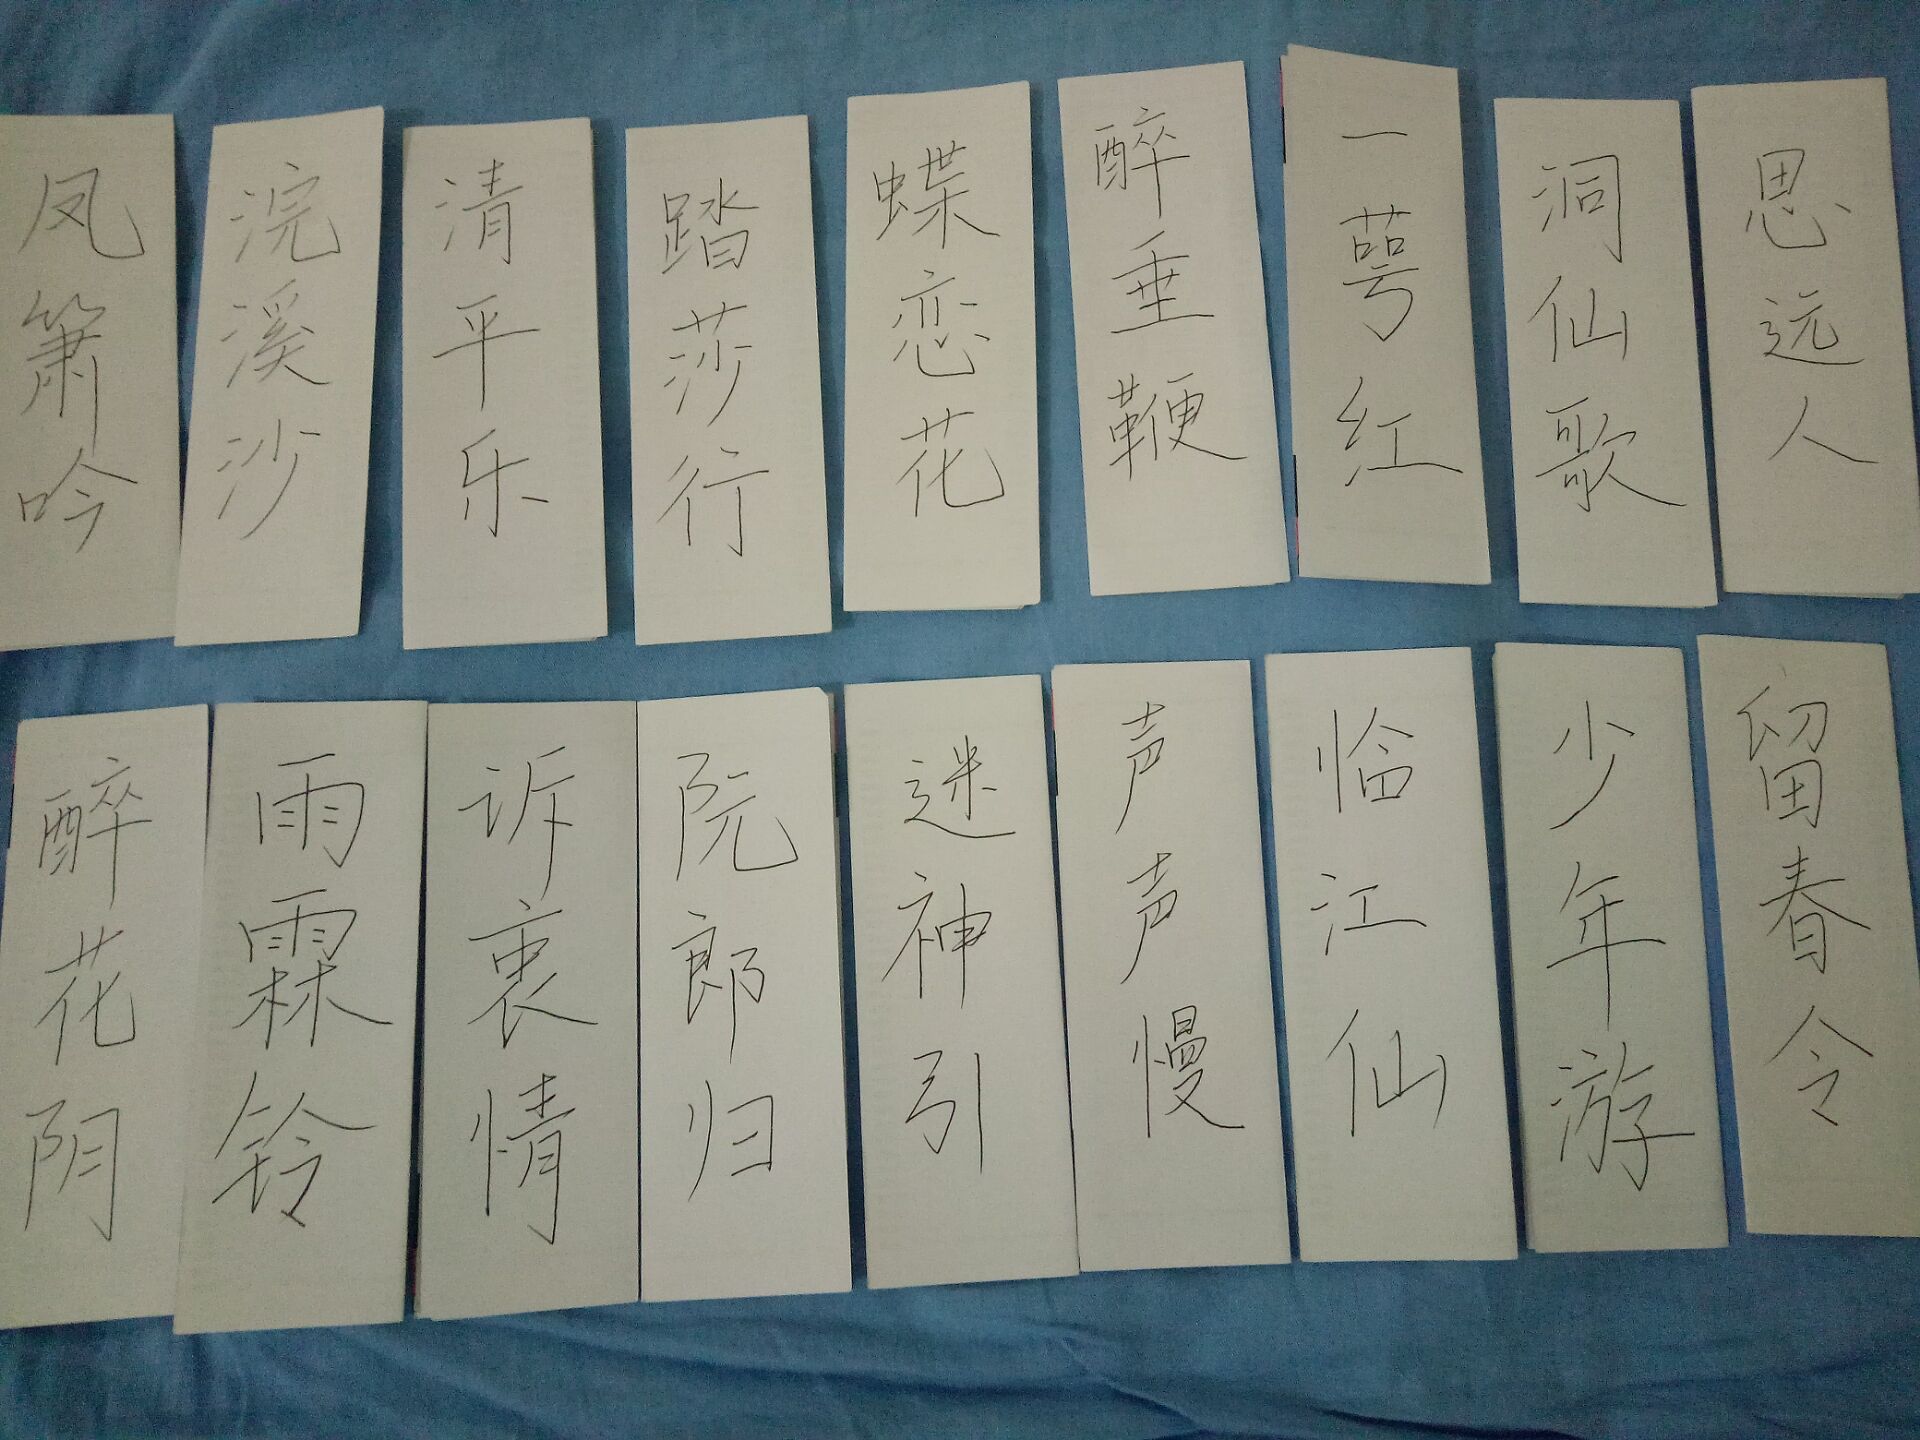 凤箫吟
浣溪沙
清平乐
踏莎行
蝶恋花
醉垂鞭
一萼红
洞仙歌
思远人
醉花阴
雨霖铃
诉衷情
阮郎归
迷神引
声声慢
临江仙
少年游
留春令